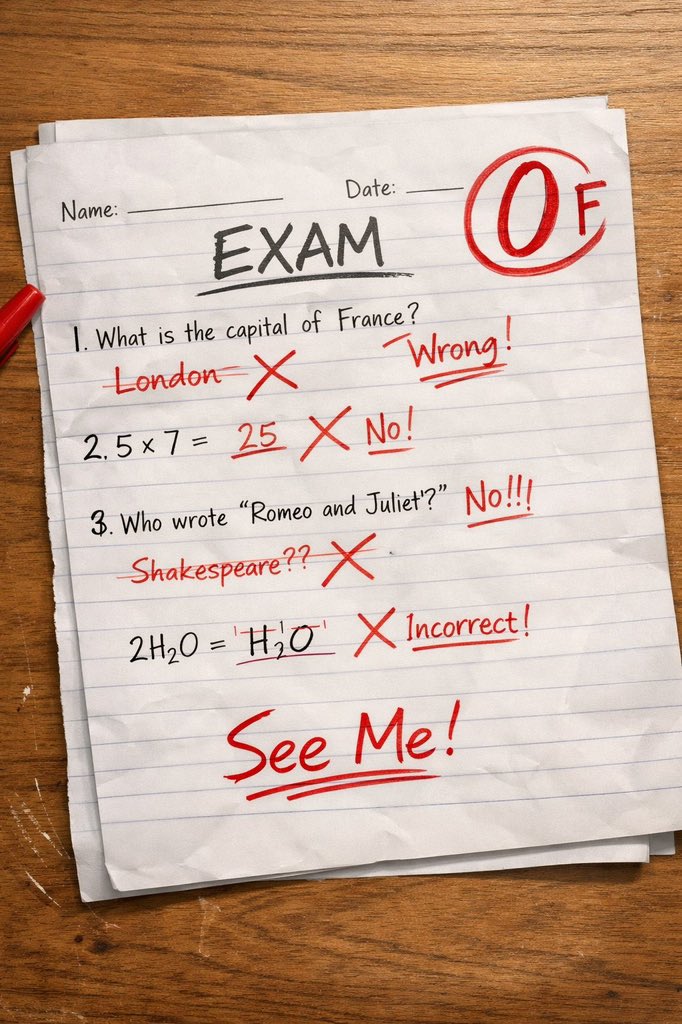 Name: Date:
0 F
EXAM
1. What is the capital of France?
London Wrong!
2. 5 x 7 = 25 No!
3. Who wrote “Romeo and Juliet'?” No!!!
Shakespeare??
2H₂O = H₂O Incorrect!
See Me!